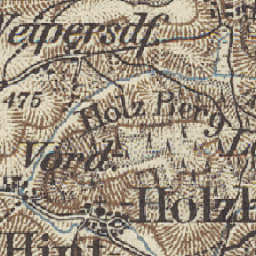 Weipersdf
475
Holz Berg
Vord.
Holzh
Hint